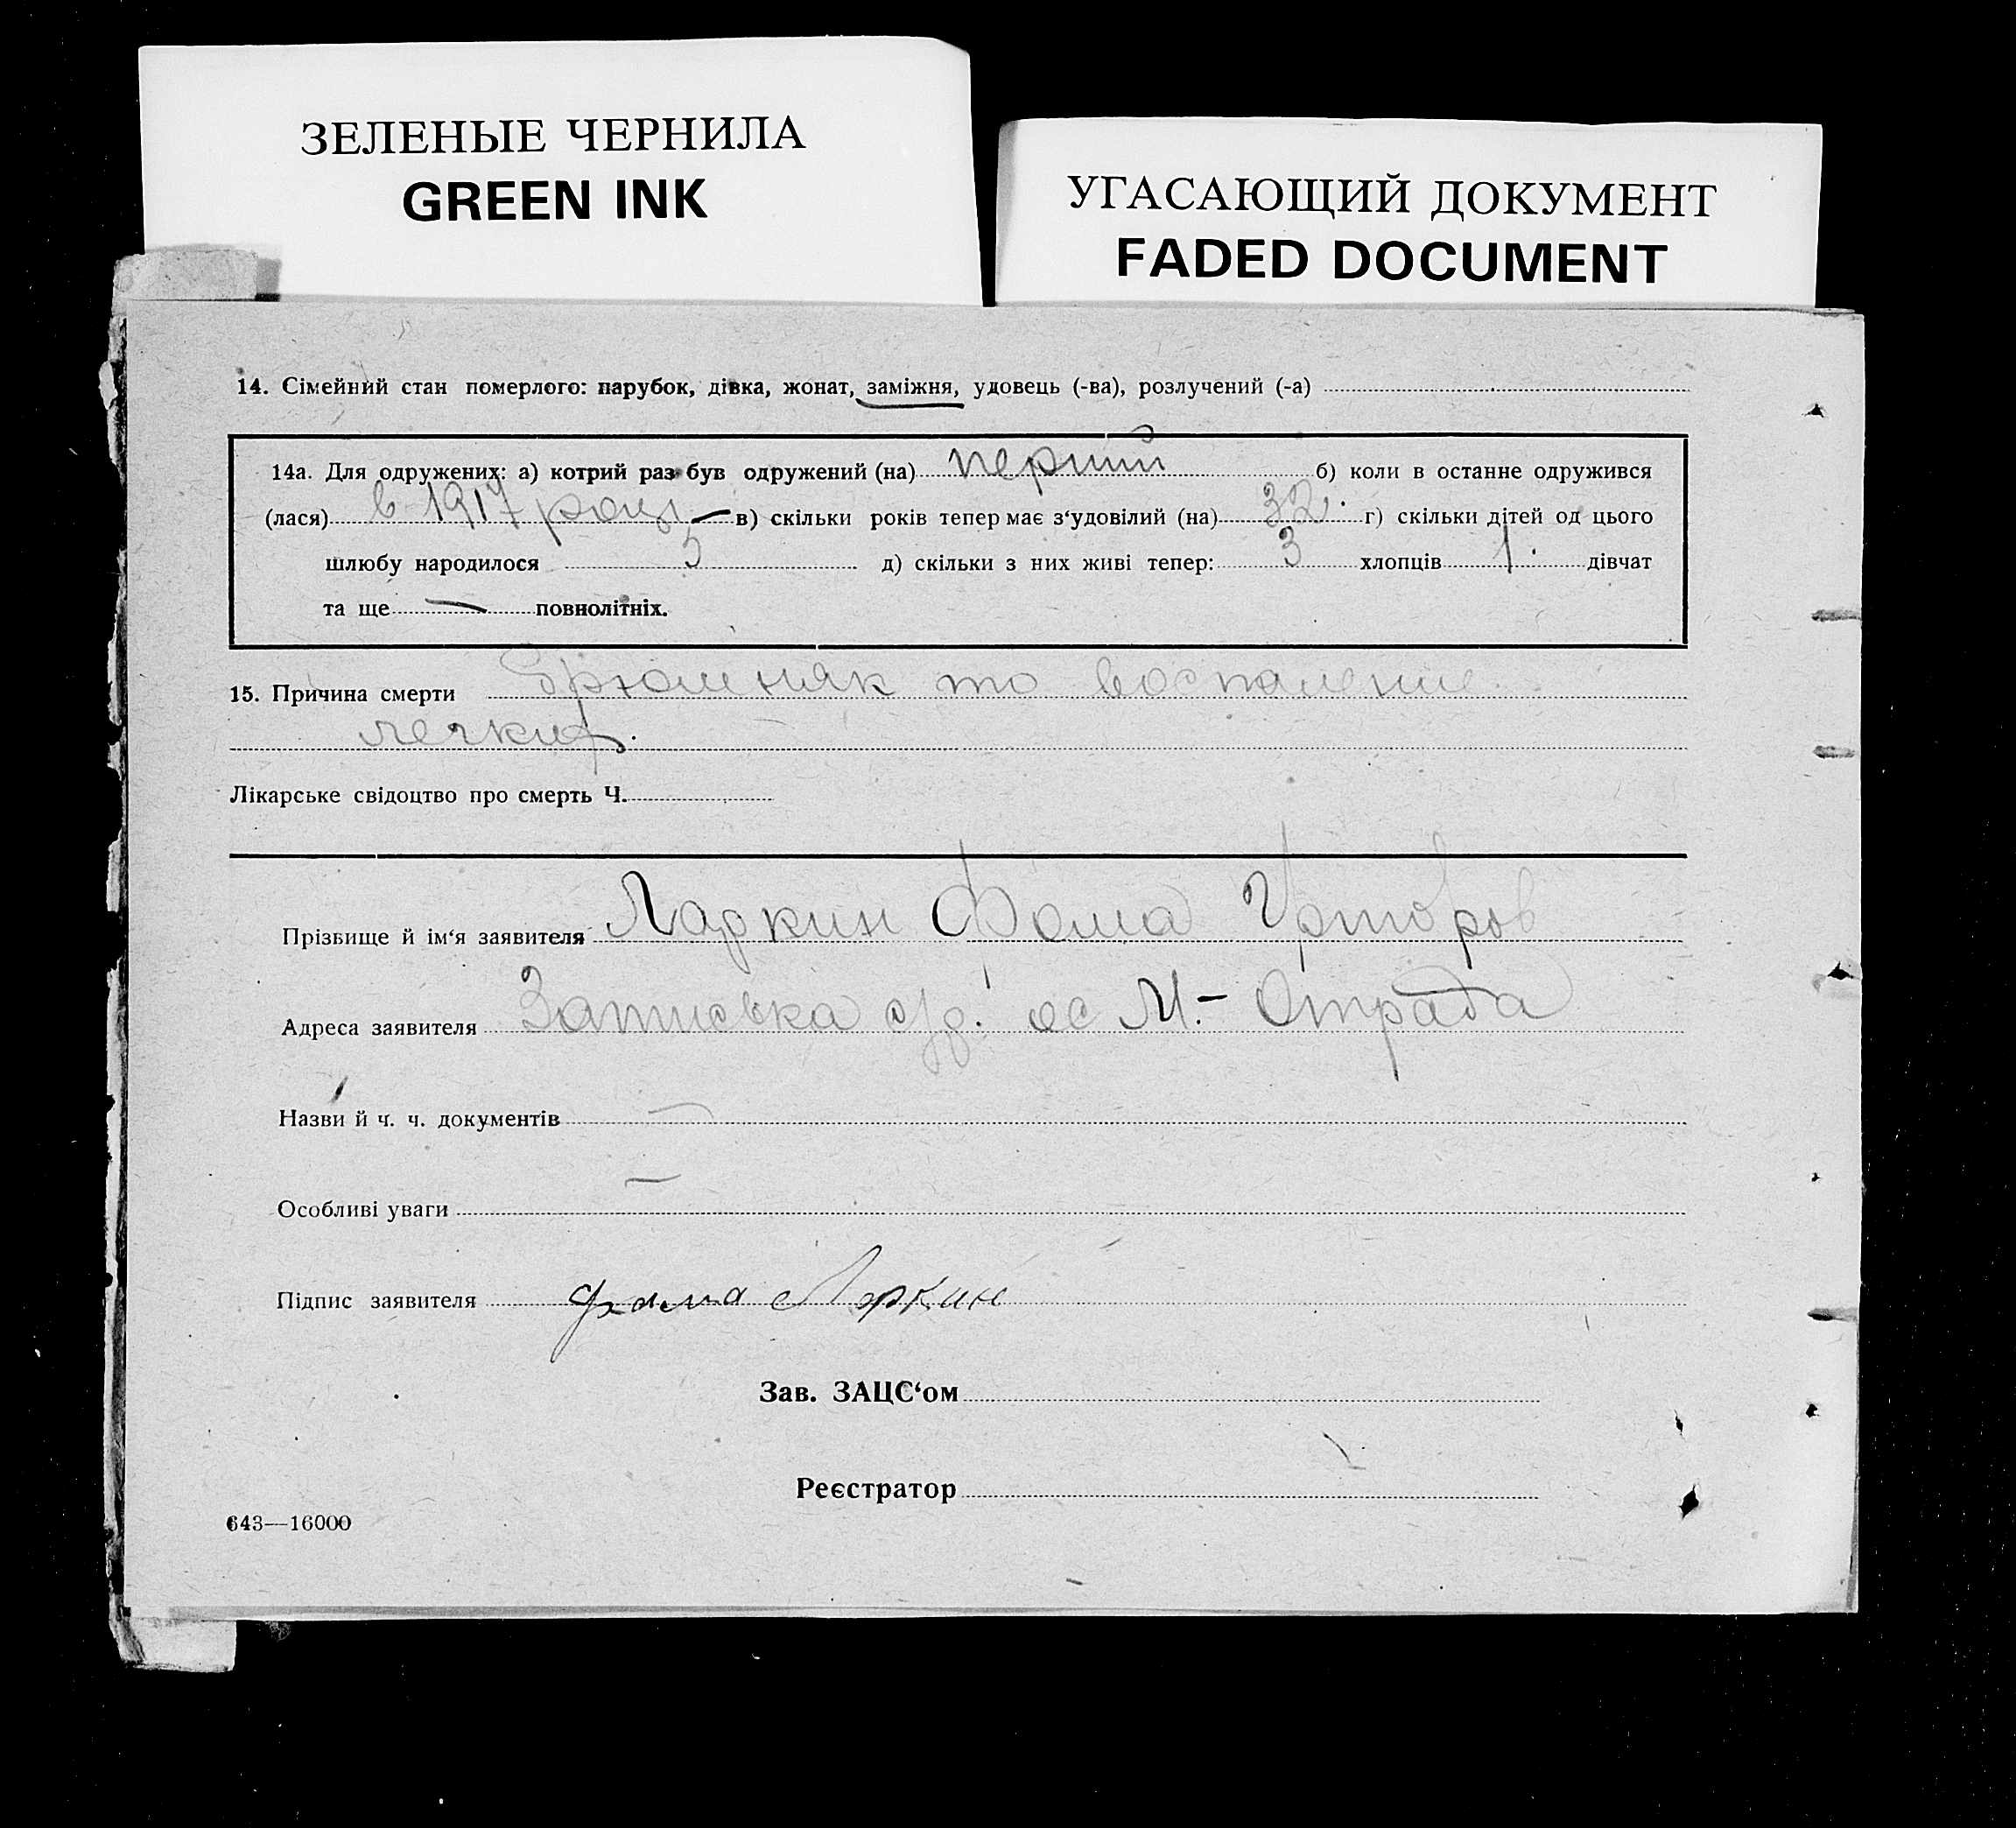 ЗЕЛЕНЫЕ ЧЕРНИЛА
GREEN INK
УГАСАЮЩИЙ ДОКУМЕНТ
FADED DOCUMENT
14. Сімейний стан померлого: парубок, дівка, жонат, заміжня, удовець (-ва), розлучений (-а)
14а. Для одружених: а) котрий раз був одружений (на) перший б) коли в останне одружився
(лася) в 1917 році — в) скільки років тепер має з‘удовілий (на) 32. г) скільки дітей од цього
шлюбу народилося 5 д) скільки з них живі тепер: 3 хлопців 1. дівчат
та ще — повнолітніх.
15. Причина смерти брюшняк то воспаление
легких.
Лікарське свідоцтво про смерть Ч.
Прізвище й ім‘я заявителя Ларкин Фома
Адреса заявителя с/р. ос М.- Отрада
Назви й ч. ч. документів —
Особливі уваги —
Підпис заявителя фома Ларкин
Зав. ЗАЦС‘ом
Реєстратор
643—16000